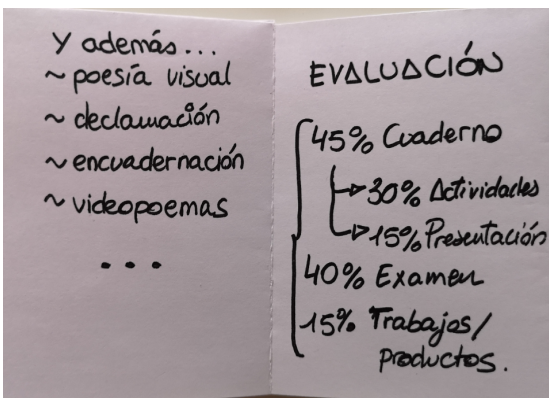 Y además...
~ poesía visual
~ declamación
~ encuadernación
~ videopoemas
...
EVALUACIÓN
45% Cuaderno
30% Actividades
15% Presentación
40% Examen
15% Trabajos/
productos.